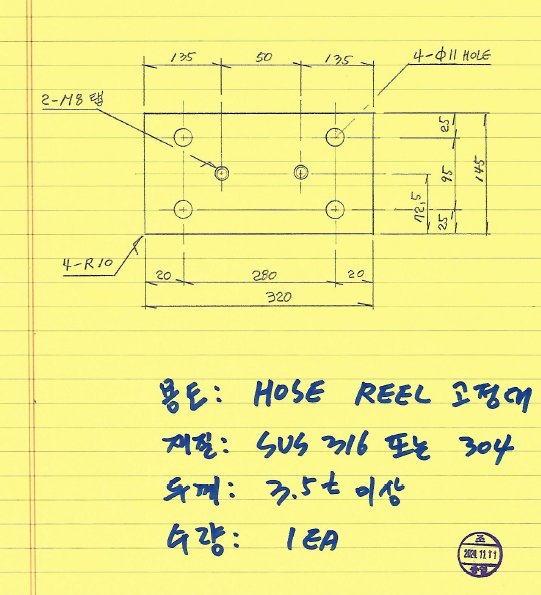 135 50 135
4-Φ11 HOLE
2-M8 탭
25
95
145
72,5
25
4-R10
20 280 20
320
용도: HOSE REEL 고정대
재질: SUS 316 또는 304
두께: 3.5t 이상
수량: 1EA
조
2024.11.11